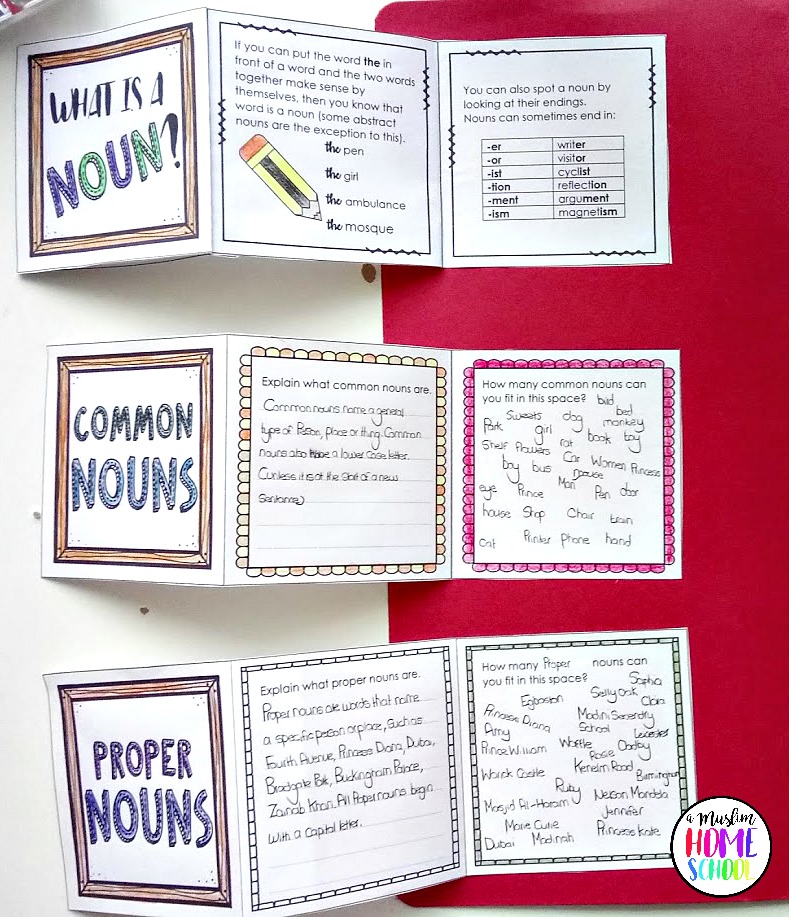 WHAT IS A
NOUN?
If you can put the word the in
front of a word and the two words
together make sense by
themselves, then you know that
word is a noun (some abstract
nouns are the exception to this).
the pen
the girl
the ambulance
the mosque
You can also spot a noun by
looking at their endings.
Nouns can sometimes end in:
-er writer
-or visitor
-ist cyclist
-tion reflection
-ment argument
-ism magnetism
COMMON
NOUNS
Explain what common nouns are.
Common nouns name a general
type of Person, place or thing. Common
nouns also have a lower case letter.
(unless it is at the start of a new
sentence)
How many common nouns can
you fit in this space? bird
Sweets dog bed
Park girl monkey
Shelf flowers rat book toy
boy bus Car Women Princess
eye Prince Man Pen door
house Shop Chair train
Cat Printer phone hand
PROPER
NOUNS
Explain what proper nouns are.
Proper nouns are words that name
a specific person or place, such as
Fourth Avenue, Princess Diana, Dubai,
Bradgate Park, Buckingham Palace,
Zainab Khan. All Proper nouns begin
with a capital letter.
How many Proper nouns can
you fit in this space? Sophia
Egbaston Selly oak Clara
Princess Diana Madini Secendry
Amy School Leicester
Prince William Rosie Oadby
Warick Castle Kenelm Road Birmingham
Ruby Nelson Mandela
Masjid Al-Haram Jennifer
Marie Curie Princess Kate
Dubai Madinah
a Muslim
HOME
SCHOOL